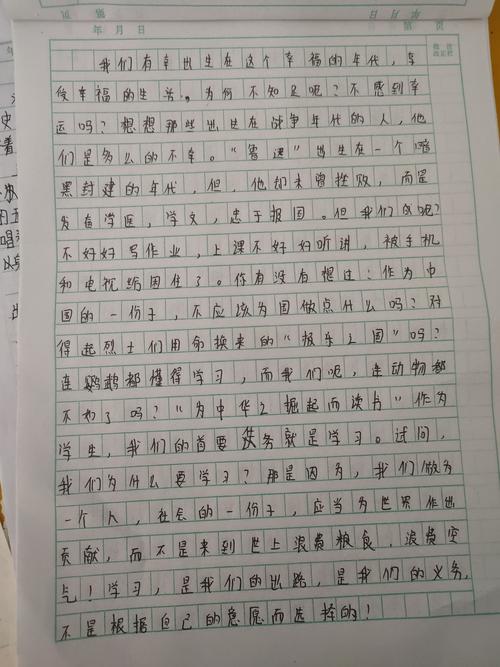 年 月 日 第 页
我们有幸出生在这个幸福的年代,享
受幸福的生活。为何不知足呢?不感到幸
运吗?想想那些出生在战争年代的人,他
们是多么的不幸。“鲁迅”出生在一个暗
黑封建的年代,但,他却未曾挫败,而是
发奋学医,学文,忠于报国。但我们呢?
不好好写作业,上课不好好听讲,被手机
和电视给困住了。你有没有想过:作为中
国的一份子,不应该为国做点什么吗?对
得起烈士们用命换来的“报车之国”吗?
连鹦鹉都懂得学习,而我们呢,连动物都
不如了吗?“为中华之掘起而读书”作为
学生,我们的首要任务就是学习。试问,
我们为什么要学习?那是因为,我们做为
一个人,社会的一份子,应当为世界作出
贡献,而不是来到世上浪费粮食,浪费空
气!学习,是我们的出路,是我们的义务,
不是根据自己的意愿而选择的!